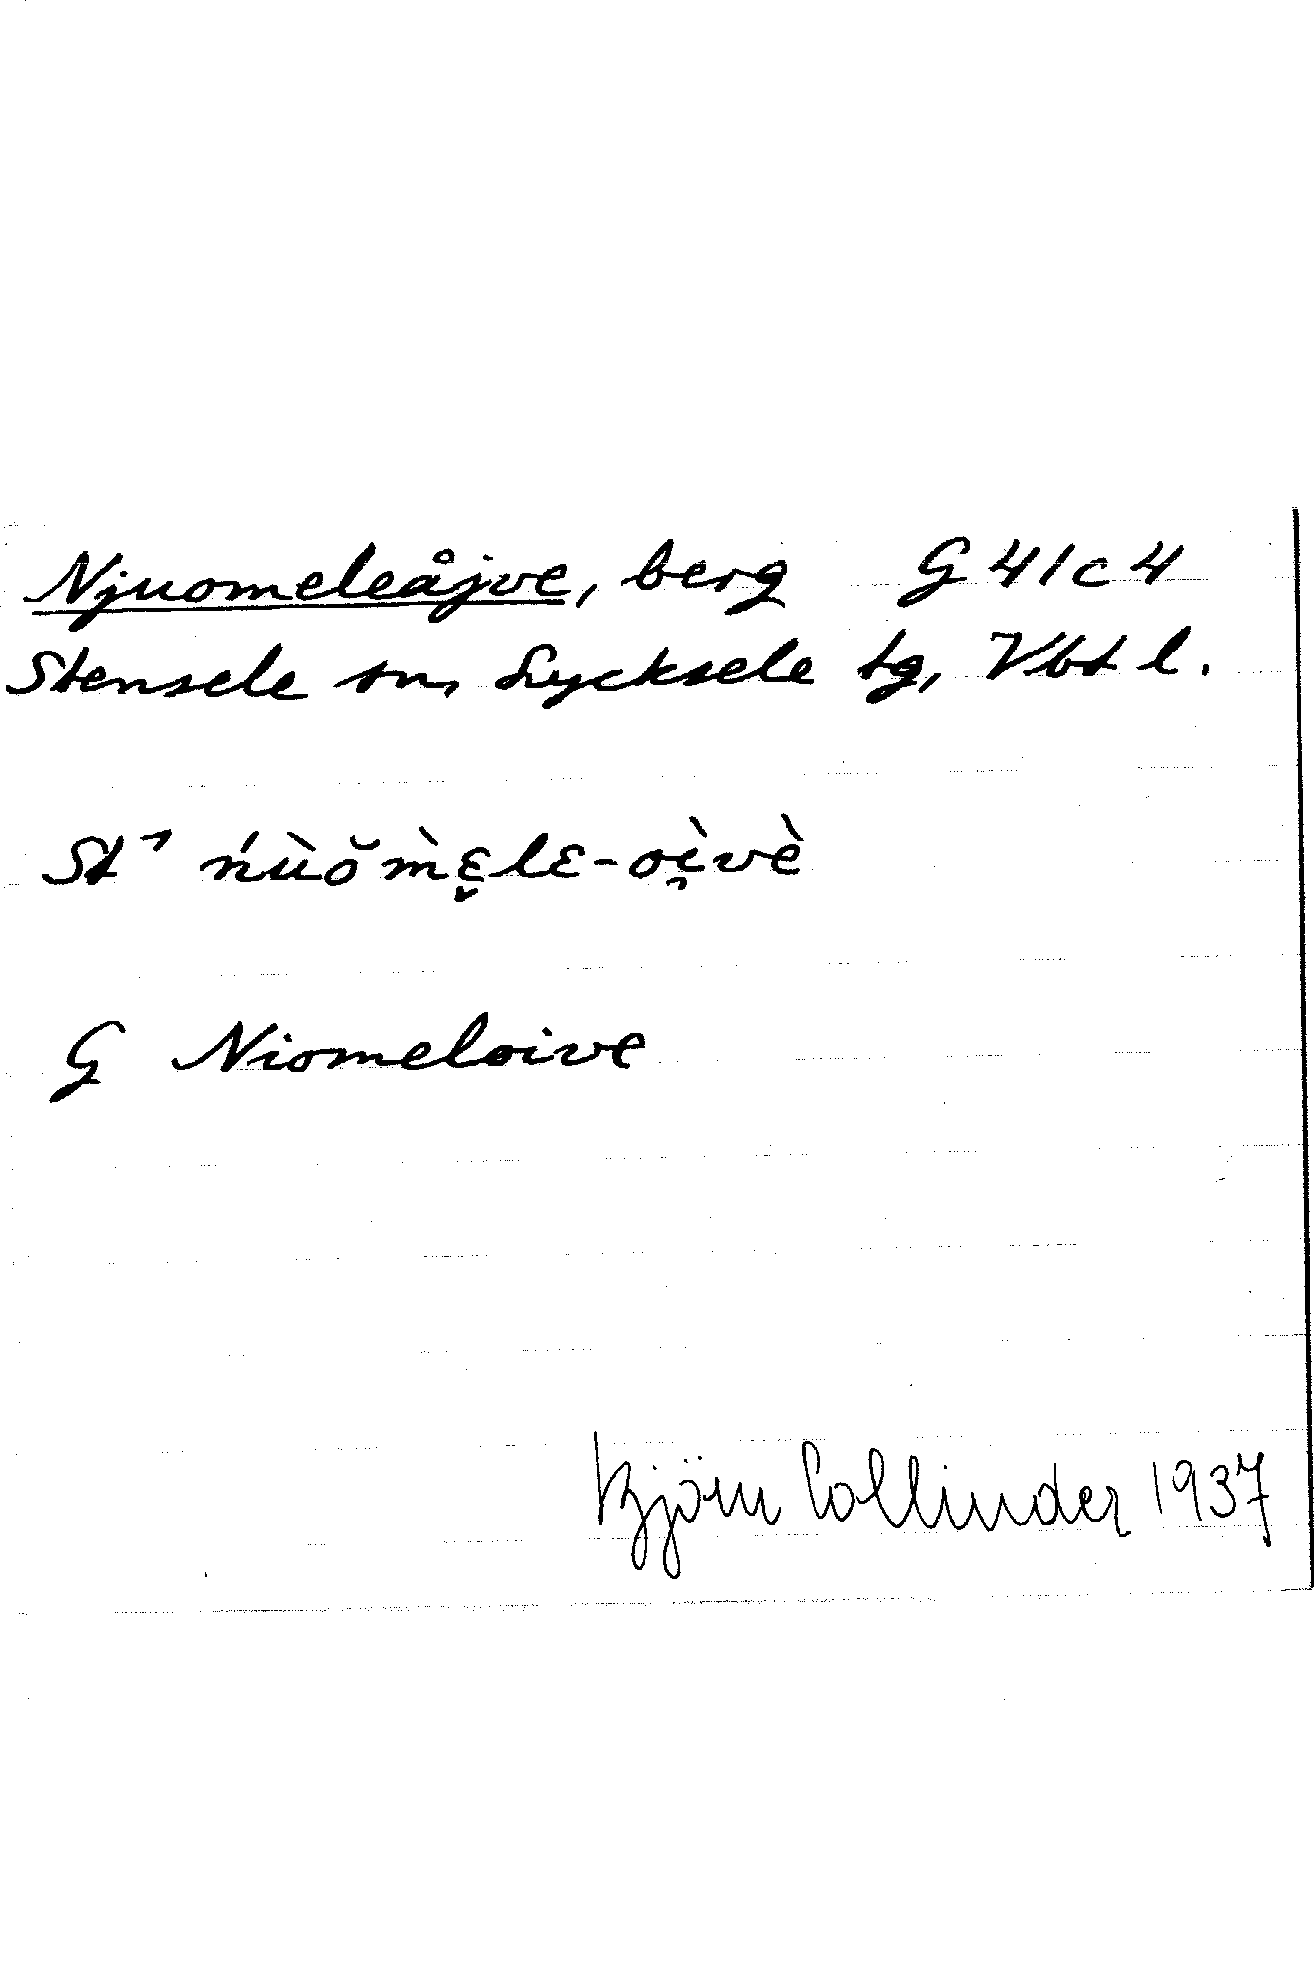 Njuomeleåjve, berg G 41c4
Stensele sn, Lycksele tg, Vbt l.
St⁊ ńùŏm̀ɛ̬lɛ-oì̯vè
G Niomeloive
Björn Collinder 1937